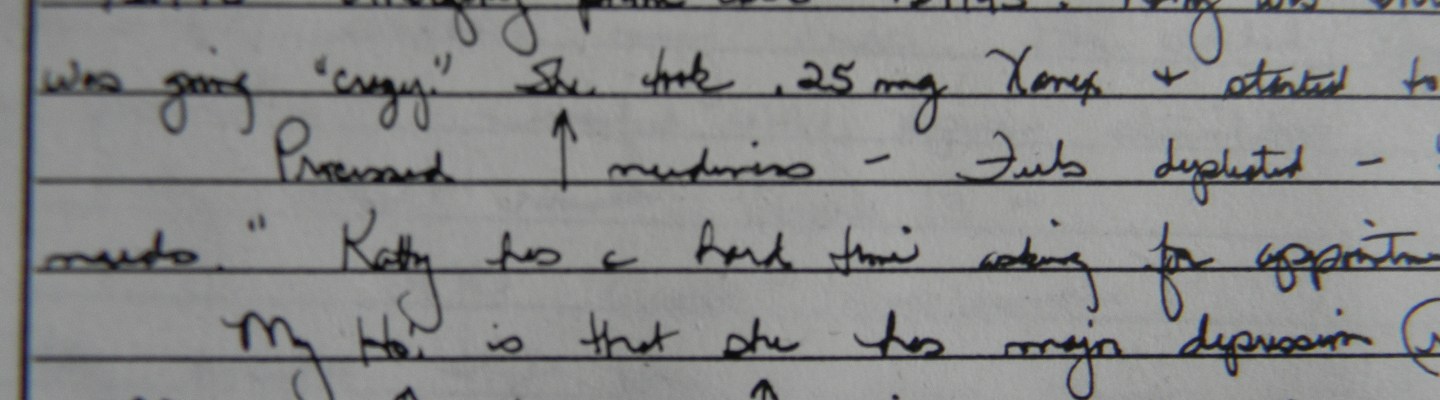 was going "crazy." She took .25 mg Xanex + started to
Processed ↑ neediness - Feels depleted -
needs." Kathy has a hard time asking for appointme
My Ho: is that she has major depression (